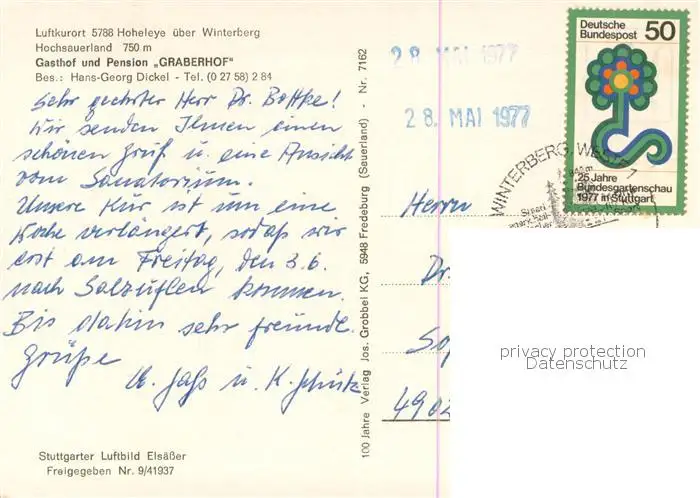 Luftkurort 5788 Hoheleye über Winterberg
Hochsauerland 750 m
Gasthof und Pension „GRABERHOF"
Bes.: Hans-Georg Dickel - Tel. (0 27 58) 2 84
Sehr geehrter Herr Dr. Bottke!
Wir senden Ihnen einen
schönen Gruß u. eine Ansicht
vom Sanatorium.
Unsere Kur ist um eine
Woche verlängert, sodaß wir
erst am Freitag, den 3.6.
nach Salzuflen kommen.
Bis dahin sehr freundl.
Grüße
u. K.
Stuttgarter Luftbild Elsäßer
Freigegeben Nr. 9/41937
100 Jahre Verlag Jos. Grobbel KG, 5948 Fredeburg (Sauerland) - Nr. 7162
28 MAI 1977
28. MAI 1977
Deutsche
Bundespost 50
25 Jahre
Bundesgartenschau
1977 in Stuttgart
WINTERBERG, WESTF
Herrn
Dr.
490
privacy protection
Datenschutz